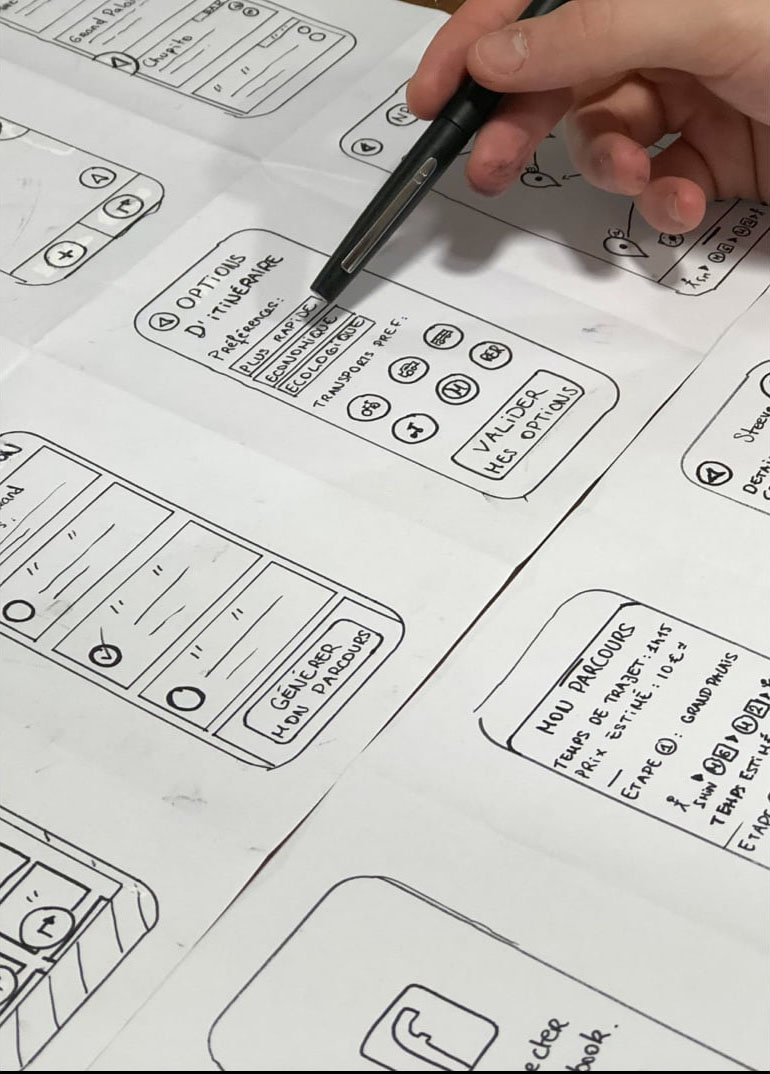 Grand Palais
Chupito
BAR
OPTIONS
D'ITINÉRAIRE
Préférences:
PLUS RAPIDE
ECONOMIQUE
ECOLOGIQUE
TRANSPORTS PREF:
RER
M
VALIDER
MES OPTIONS
GÉNÉRER
MON PARCOURS
Steeve
MON PARCOURS
TEMPS DE TRAJET: 1h15
PRIX ESTIMÉ: 10€
ETAPE 1: GRAND PALAIS
5MIN
TEMPS ESTIMÉ
ETAPE
f
ecter
book.